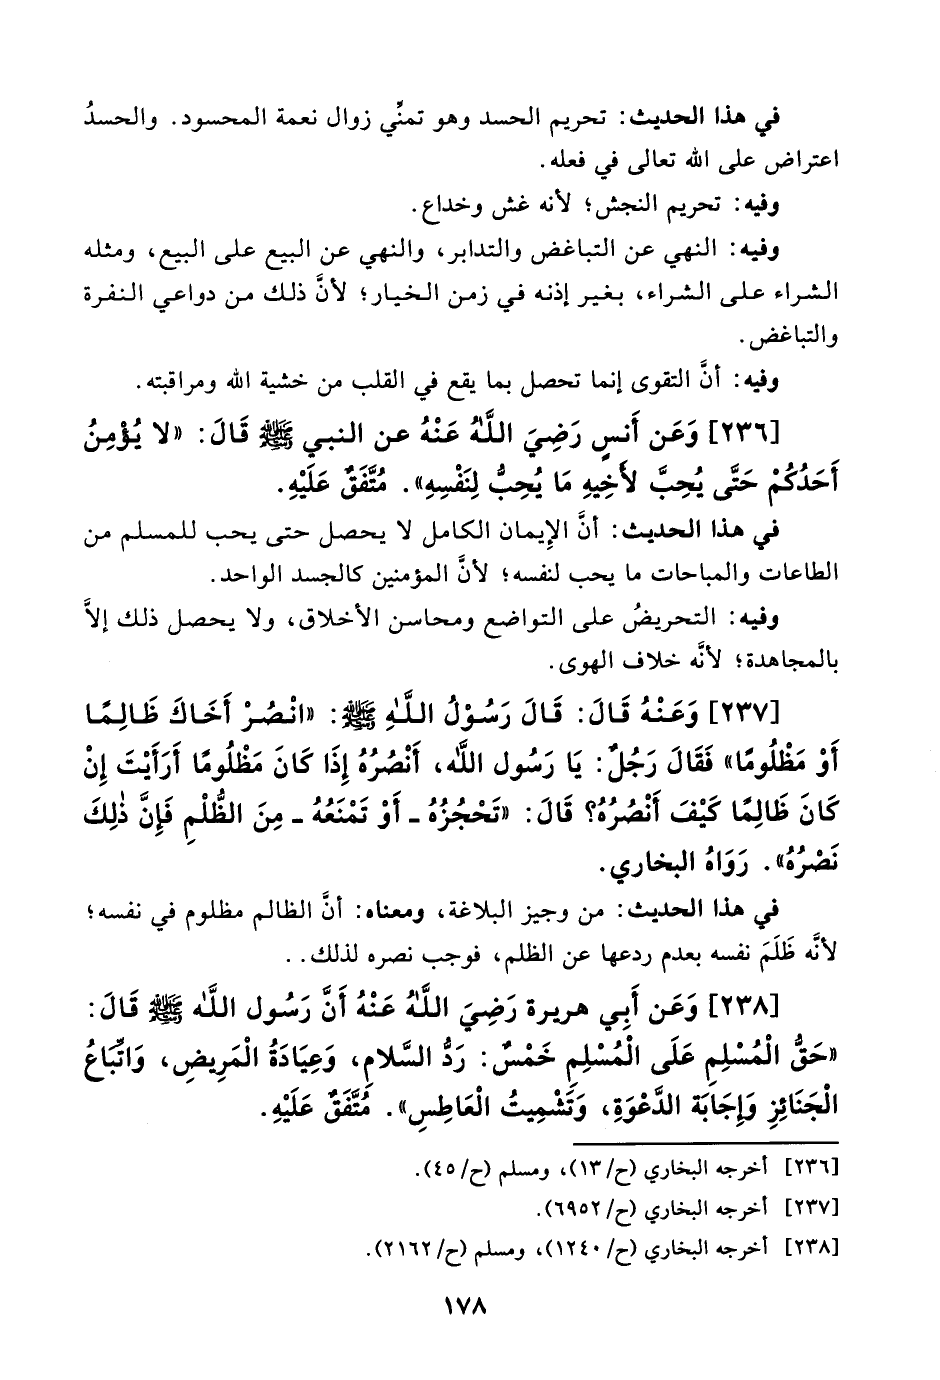 في هذا الحديث: تحريم الحسد وهو تمنِّي زوال نعمة المحسود. والحسدُ
اعتراض على الله تعالى في فعله.
وفيه: تحريم النجش؛ لأنه غش وخداع.
وفيه: النهي عن التباغض والتدابر، والنهي عن البيع على البيع، ومثله
الشراء على الشراء، بغير إذنه في زمن الخيار؛ لأنَّ ذلك من دواعي النفرة
والتباغض.
وفيه: أنَّ التقوى إنما تحصل بما يقع في القلب من خشية الله ومراقبته.
[٢٣٦] وَعَن أَنسٍ رَضِيَ اللَّهُ عَنْهُ عن النبي ﷺ قَالَ: «لا يُؤْمِنُ
أَحَدُكُمْ حَتَّى يُحِبَّ لأَخِيهِ مَا يُحِبُّ لِنَفْسِهِ». مُتَّفَقٌ عَلَيْهِ.
في هذا الحديث: أنَّ الإِيمان الكامل لا يحصل حتى يحب للمسلم من
الطاعات والمباحات ما يحب لنفسه؛ لأنَّ المؤمنين كالجسد الواحد.
وفيه: التحريضُ على التواضع ومحاسن الأخلاق، ولا يحصل ذلك إلاَّ
بالمجاهدة؛ لأنَّه خلاف الهوى.
[٢٣٧] وَعَنْهُ قَالَ: قَالَ رَسُوْلُ اللَّهِ ﷺ: «انْصُرْ أَخَاكَ ظَالِمًا
أَوْ مَظْلُومًا» فَقَالَ رَجُلٌ: يَا رَسُول اللَّه، أَنْصُرُهُ إِذَا كَانَ مَظْلُومًا أَرَأَيْتَ إِنْ
كَانَ ظَالِمًا كَيْفَ أَنْصُرُهُ؟ قَالَ: «تَحْجُزُهُ ـ أَوْ تَمْنَعُهُ ـ مِنَ الظُّلْمِ فَإِنَّ ذٰلِكَ
نَصْرُهُ». رَوَاهُ البخاري.
في هذا الحديث: من وجيز البلاغة، ومعناه: أنَّ الظالم مظلوم في نفسه؛
لأنَّه ظَلَمَ نفسه بعدم ردعها عن الظلم، فوجب نصره لذلك..
[٢٣٨] وَعَن أَبِي هريرة رَضِيَ اللَّهُ عَنْهُ أَنَّ رَسُول اللَّه ﷺ قَالَ:
«حَقُّ الْمُسْلِمِ عَلَى الْمُسْلِمِ خَمْسٌ: رَدُّ السَّلامِ، وَعِيَادَةُ الْمَرِيضِ، وَاتِّبَاعُ
الْجَنَائِزِ وَإِجَابَة الدَّعْوَةِ، وَتَشْمِيتُ الْعَاطِسِ». مُتَّفَقٌ عَلَيْهِ.
[٢٣٦] أخرجه البخاري (ح/١٣)، ومسلم (ح/٤٥).
[٢٣٧] أخرجه البخاري (ح/٦٩٥٢).
[٢٣٨] أخرجه البخاري (ح/١٢٤٠)، ومسلم (ح/٢١٦٢).
١٧٨